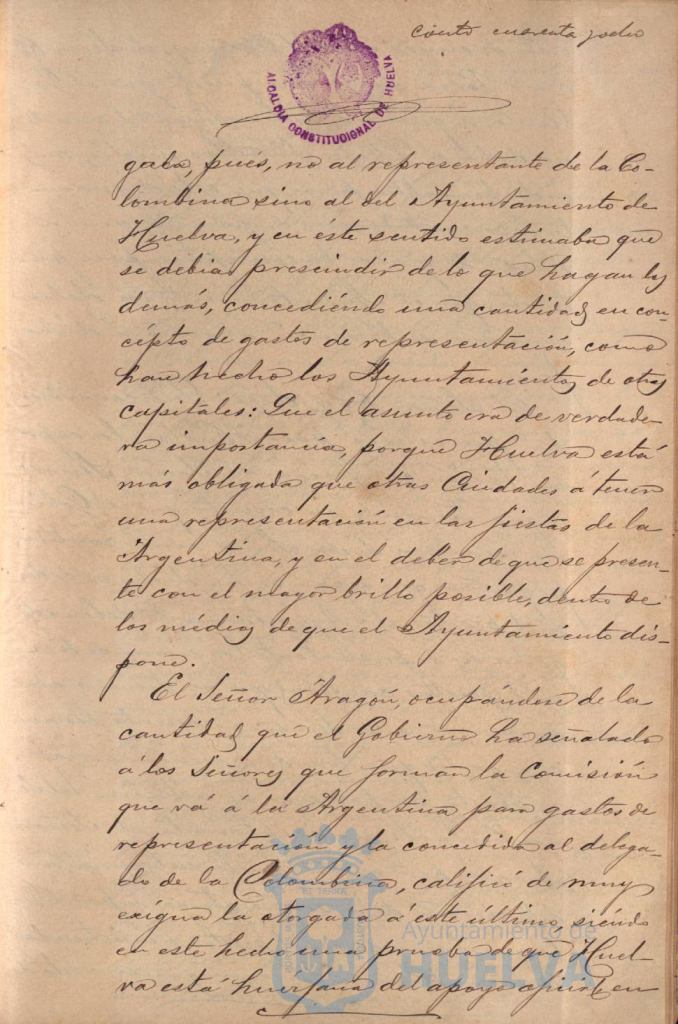 ciento cuarenta y ocho
ALCALDÍA CONSTITUCIONAL DE HUELVA
gaba, pués, no al representante de la Co-
lombina sino al del Ayuntamiento de
Huelva, y en éste sentido estimaba que
se debia prescindir de lo que hagan los
demás, concediéndo una cantidad en con-
cépto de gastos de representación, como
han hecho los Ayuntamientos de otras
capitales: Que el asunto era de verdade-
ra importancia, porque Huelva está
más obligada que otras Ciudades á tener
una representación en las fiestas de la
Argentina, y en el deber de que se presen-
te con el mayor brillo posible, dentro de
los médios de que el Ayuntamiento dis-
pone.
El Señor Aragón, ocupándose de la
cantidad que el Gobierno ha señalado
á los Señores que forman la Comisión
que vá á la Argentina para gastos de
representación y la concedida al delega-
do de la Colombina, calificó de muy
exigua la otorgada á este último, siendo
en este hecho una prueba de que Huel-
va está huerfana del apoyo en
Ayuntamiento de
HUELVA